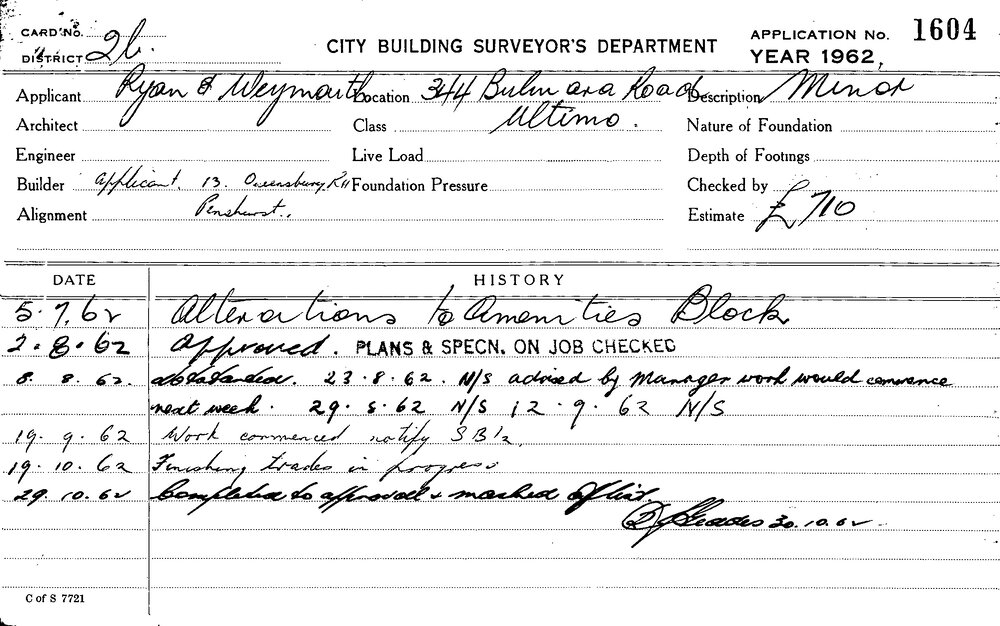 CARD NO.
DISTRICT 2b.
CITY BUILDING SURVEYOR'S DEPARTMENT
APPLICATION No. 1604
YEAR 1962,
Applicant Ryan & Weymouth Location 344 Bulwara Road Description Minor
Architect Class Ultimo. Nature of Foundation
Engineer Live Load Depth of Footings
Builder applicant. 13. Queensbury Rd Foundation Pressure Checked by
Alignment Penshurst. Estimate £710
DATE HISTORY
5.7.62 Alterations to Amenities Block
2.8.62 Approved. PLANS & SPECN. ON JOB CHECKED
8.8.62. 23.8.62. N/S advised by manager work would commence
next week. 29.8.62 N/S 12.9.62 N/S
19.9.62 Work commenced notify SB12.
19.10.62 Finishing trades in progress
29.10.62 Completed to approval & marked off list.
30.10.62
C of S 7721